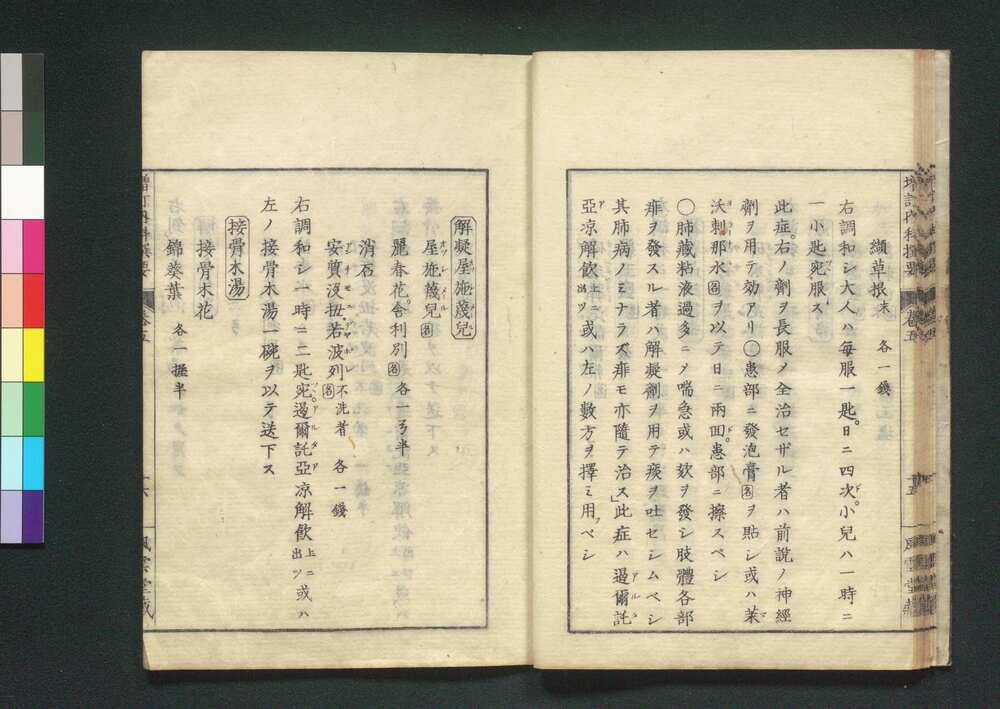 纈草根末 各一錢
右調和シ大人ハ毎服一匙。日ニ四次。小兒ハ一時ニ
一小匙宛服ス
此症。右ノ劑ヲ長服ノ全治セザル者ハ前説ノ神經
劑ヲ用テ効アリ〇患部ニ發泡膏名ヲ貼シ或ハ茱
沃刺那水名ヲ以テ日ニ兩囬。患部ニ擦スベシ
〇肺藏粘液過多ニノ喘急或ハ欬ヲ發シ肢體各部
痱ヲ發スル者ハ解凝劑ヲ用テ痰ヲ吐セシムベシ
其肺病ノミナラズ痱モ亦隨テ治ス」此症ハ過爾託
亞凉解飲上ニ出ツ或ハ左ノ數方ヲ擇ミ用ベシ
十五
風雲堂藏
解凝屋施篾兒
屋施篾兒名
麗春花舎利別名 各一弓半
消石
安質没扭若波列名不洗者 各一錢
右調和シ一時ニ二匙宛。過爾託亞凉解飲上ニ出ツ或ハ
左ノ接骨木湯一碗ヲ以テ送下ス
接骨木湯
接骨木花
錦葵葉 各一握半
十六
風雲堂藏